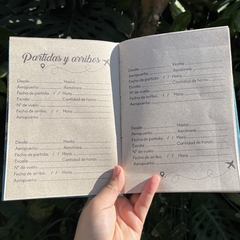 Partidas y arribos
Desde Hasta
Aeropuerto Aerolínea
Fecha de partida: / / Hora
Escala Cantidad de horas
N° de vuelo
Fecha de arribo: / / Hora
Aeropuerto
Desde Hasta
Aeropuerto Aerolínea
Fecha de partida: / / Hora
Escala Cantidad de horas
N° de vuelo
Fecha de arribo: / / Hora
Aeropuerto
Desde Hasta
Aeropuerto Aerolínea
Fecha de partida: / / Hora
Escala Cantidad de horas
N° de vuelo
Fecha de arribo: / / Hora
Aeropuerto
Desde Hasta
Aeropuerto Aerolínea
Fecha de partida: / / Hora
Escala Cantidad de horas
N° de vuelo
Fecha de arribo: / / Hora
Aeropuerto